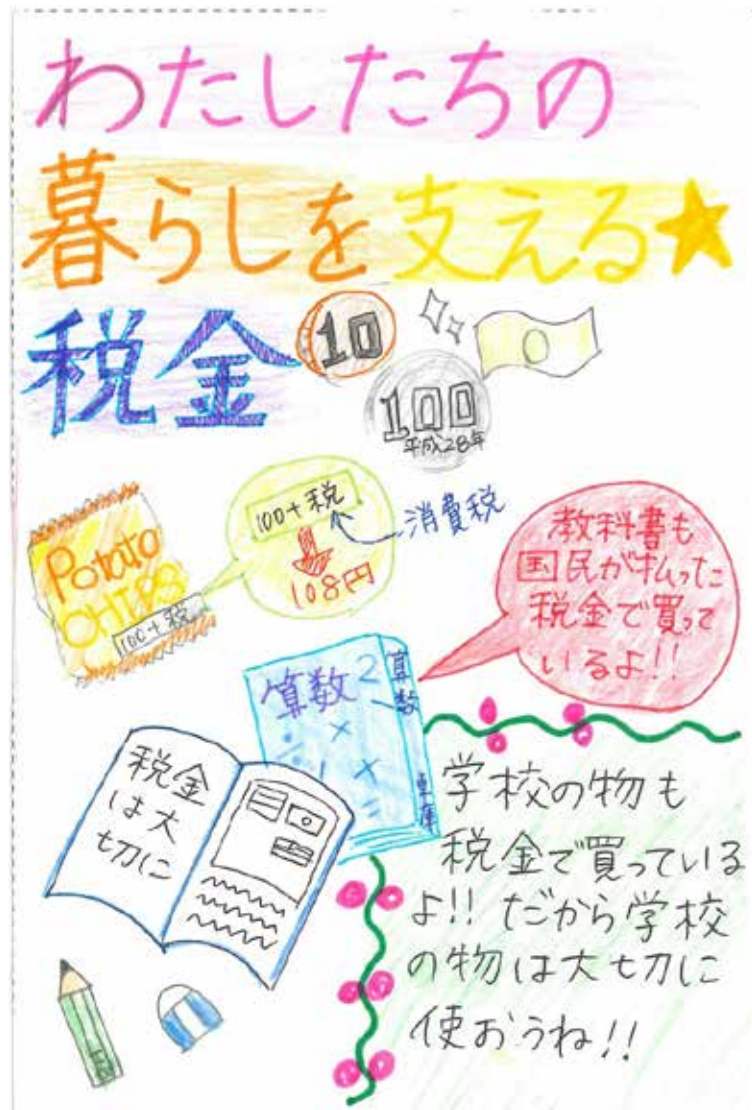 わたしたちの
暮らしを支える★
税金
10
100
平成28年
Potato
CHIPS
100+税
100+税
108円
消費税
教科書も
国民が払った
税金で買って
いるよ!!
算数2
算数
税金
は大
切に
学校の物も
税金で買っている
よ!! だから学校
の物は大切に
使おうね!!